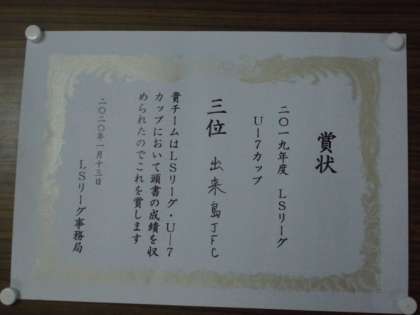 賞状
二〇一九年度 LSリーグ
U-7カップ
三位 出来島JFC
貴チームはLSリーグ・U-7
カップにおいて頭書の成績を収
められたのでこれを賞します
二〇二〇年一月十三日
LSリーグ事務局